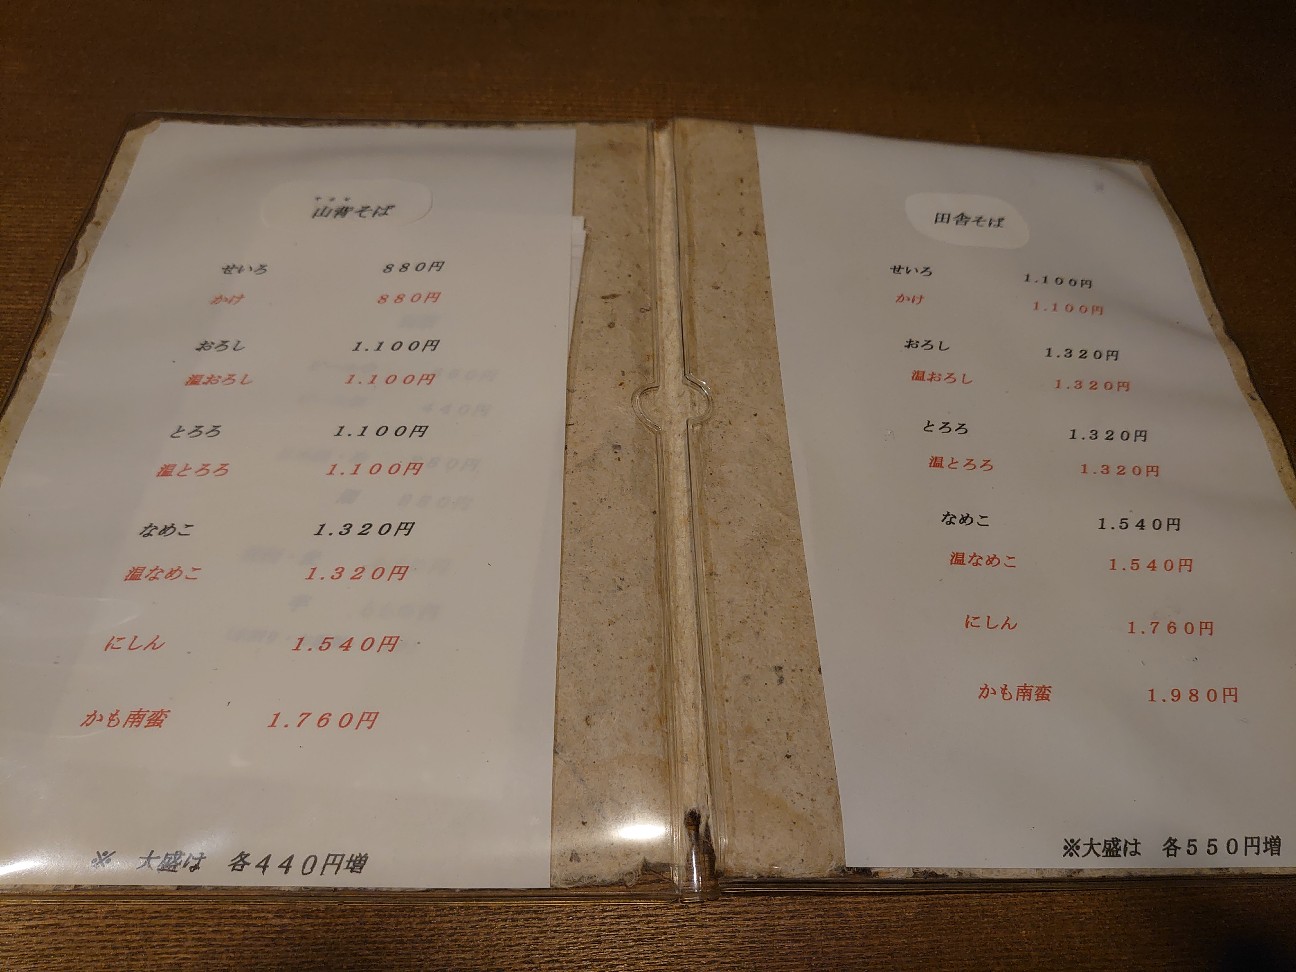 山背そば
せいろ 880円
かけ 880円
おろし 1.100円
温おろし 1.100円
とろろ 1.100円
温とろろ 1.100円
なめこ 1.320円
温なめこ 1.320円
にしん 1.540円
かも南蛮 1.760円
※ 大盛は 各440円増
田舎そば
せいろ 1.100円
かけ 1.100円
おろし 1.320円
温おろし 1.320円
とろろ 1.320円
温とろろ 1.320円
なめこ 1.540円
温なめこ 1.540円
にしん 1.760円
かも南蛮 1.980円
※大盛は 各550円増